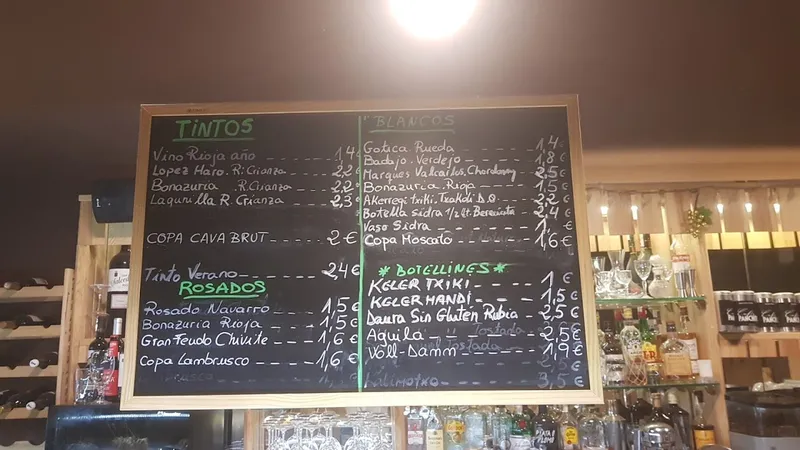 TINTOS
Vino Rioja año 1,4
Lopez Haro. R. Crianza 2,2
Bonazuria R. Crianza 2,2
Lagunilla R. Crianza 2,3
COPA CAVA BRUT 2 €
Tinto Verano 2,4
ROSADOS
Rosado Navarro 1,5 €
Bonazuria Rioja 1,5 €
Gran Feudo Chivite 1,6 €
Copa Lambrusco 1,6 €
BLANCOS
Gotica Rueda 1,4 €
Badajo Verdejo 1,8 €
Marques Valcarlos, Chardonay 2,5 €
Bonazuria Rioja 1,5 €
Akerregi txiki, Txakoli D.O. 2,2 €
Botella Sidra 1/2 lt. Bereciata 2,4 €
Vaso Sidra 1 €
Copa Moscato 1,6 €
* BOTELLINES *
KELER TXIKI 1 €
KELER HANDI 1,5 €
Daura Sin Gluten Rubia 2,5 €
Aquila 2,5 €
Völl-Damm 1,9 €
Kalimotxo 3,5 €